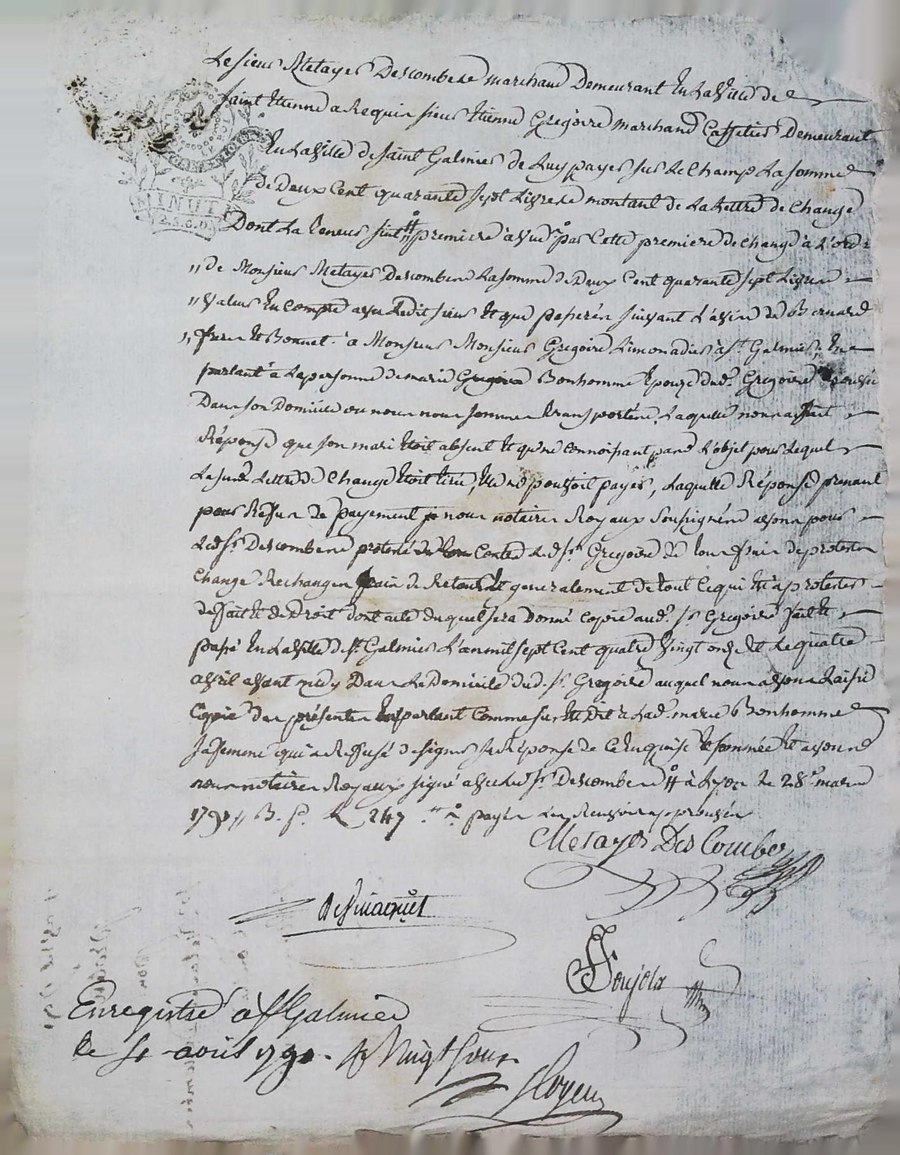 Le sieur Metayer Descombes marchand Demeurant En La Ville de
Saint Etienne a Requis sieur Etienne Gregoire marchand Caffetier Demeurant
En La Ville de Saint Galmier de Luy payer sur Le Champ La somme
de Deux Cent quarante sept Livres montant de La Lettre de Change
MINUT
2 S. 6 D.
Dont La teneur suit premiere à vue par Cette premiere de change à L'ordre
" de Monsieur Metayer Descombes La somme de Deux Cent quarante sept Livres
" Valeur En Compte avec Ledit sieur Et que passerés suivant L'avis de Bernard
" frere Et Bonnet à Monsieur Monsieur Gregoire Limonadier à St. Galmier, En
parlant à La personne de marie Bonhomme Epouze dud. Gregoire
Dans son Domicile ou nous nous sommes transportés, Laquelle nous a fait
Réponse que son mari étoit absent Et qu'ne connoissant pas L'objet pour Lequel
Lasusd. Lettre de Change étoit tirée, Elle ne pouvoit payer, Laquelle Réponse prenant
pour Refus de payement nous notaires Royaux Soussignés avons pour
Led. Sr. Descombes protesté Contre Led. Sr. Gregoire de tous frais de protests
Change Rechange frais de Retour Et generalement de tout Ce qui Est à protester
de fait Et de Droit dont acte duquel sera Donné Copie aud. Sr. Gregoire fait Et
passé En La Ville de St. Galmier L'an mil sept Cent quatre Vingt onze Et Le quatre
avril avant midy Dans Le Domicile dud. Sr. Gregoire auquel nous avons Laissé
Copie des présentes En parlant Comme sus Est Dit à Lad. marie Bonhomme
Sa femme qui a Reffusé de signer sa Réponse de Ce Enquise Et sommée Et avons
nous notaires Royaux signé avec Led. Sr. Descombes à Lyon Le 28 mars
1791 " B. P. L 247 payer Les Renvois approuvés
Metayer Des Combes
Desmarquet
Enregistré à St Galmier
Le 4 avril 1791. R Vingt sous